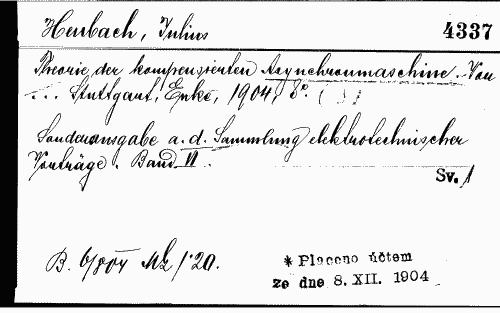 Heubach, Julius 4337
Theorie der kompensierten Asynchronmaschine. Von
... Stuttgart, Enke, 1904, 8°. ( )
Sonderausgabe a. d. Sammlung elektrotechnischer
Vorträge. Band VI.
Sv. 1
B. 6/804 Mk 1·20.
* Placeno účtem
ze dne 8. XII. 1904